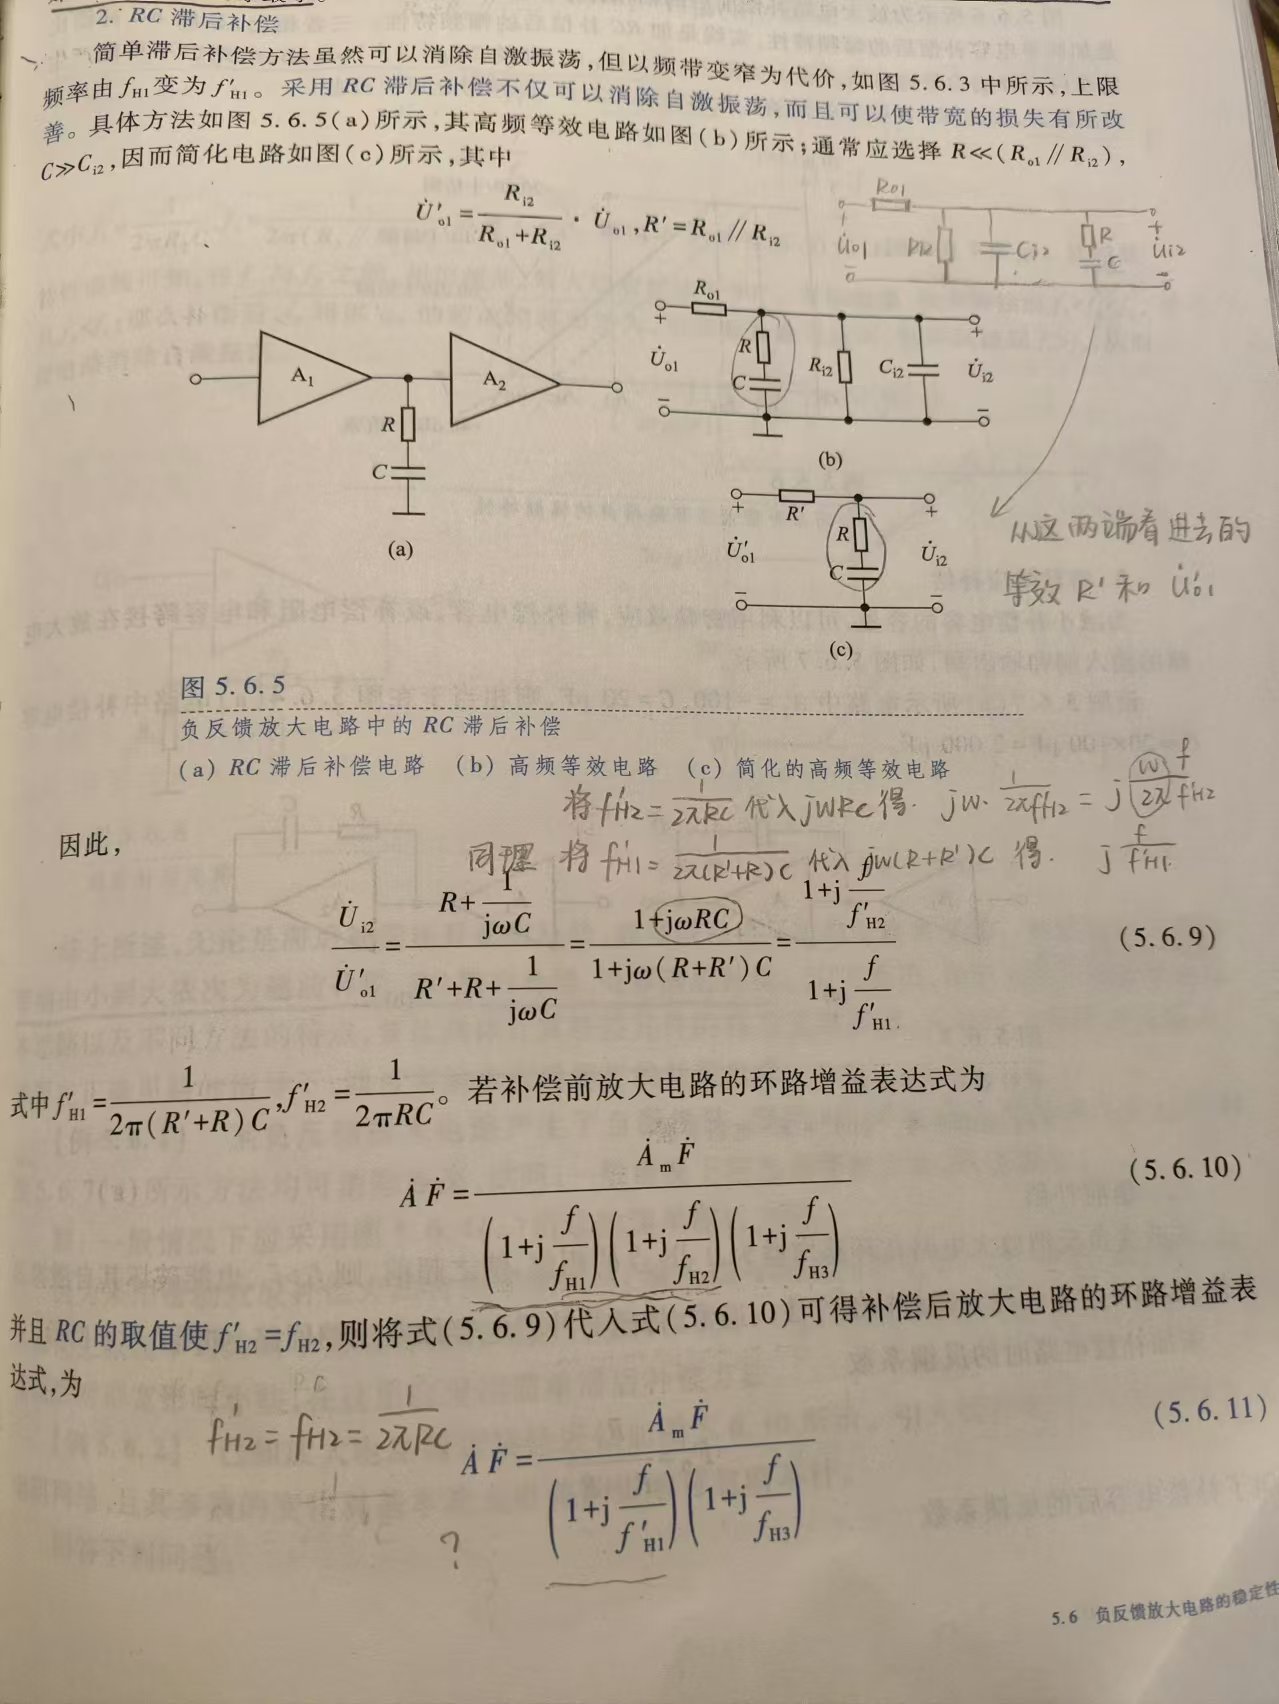 2. RC 滞后补偿
简单滞后补偿方法虽然可以消除自激振荡,但以频带变窄为代价,如图 5.6.3 中所示,上限
频率由 fH1 变为 f′H1。采用 RC 滞后补偿不仅可以消除自激振荡,而且可以使带宽的损失有所改
善。具体方法如图 5.6.5(a)所示,其高频等效电路如图(b)所示;通常应选择 R≪(Ro1∥Ri2),
C≫Ci2,因而简化电路如图(c)所示,其中
U̇′o1 = Ri2/(Ro1+Ri2) · U̇o1, R′=Ro1∥Ri2
Ro1
U̇o1
Ci2
R
C
U̇i2
A1
A2
R
C
(a)
Ro1
U̇o1
R
C
Ri2
Ci2
U̇i2
(b)
R′
U̇′o1
R
C
U̇i2
(c)
从这两端看进去的
等效 R′ 和 U̇′o1
图 5.6.5
负反馈放大电路中的 RC 滞后补偿
(a) RC 滞后补偿电路 (b) 高频等效电路 (c) 简化的高频等效电路
将 f′H2 = 1/(2πRC) 代入 jwRC 得. jw· 1/(2πf′H2) = j (w/2π) f/f′H2
因此,
同理 将 f′H1 = 1/(2π(R′+R)C) 代入 jw(R+R′)C 得. j f/f′H1
U̇i2/U̇′o1 = (R+1/(jωC))/(R′+R+1/(jωC)) = (1+jωRC)/(1+jω(R+R′)C) = (1+j f/f′H2)/(1+j f/f′H1) (5.6.9)
式中 f′H1 = 1/(2π(R′+R)C), f′H2 = 1/(2πRC)。若补偿前放大电路的环路增益表达式为
ȦḞ = ȦmḞ/((1+j f/fH1)(1+j f/fH2)(1+j f/fH3)) (5.6.10)
并且 RC 的取值使 f′H2=fH2,则将式(5.6.9)代入式(5.6.10)可得补偿后放大电路的环路增益表
达式,为
f′H2 = fH2 = 1/(2πRC)
ȦḞ = ȦmḞ/((1+j f/f′H1)(1+j f/fH3)) (5.6.11)
?
5.6 负反馈放大电路的稳定性